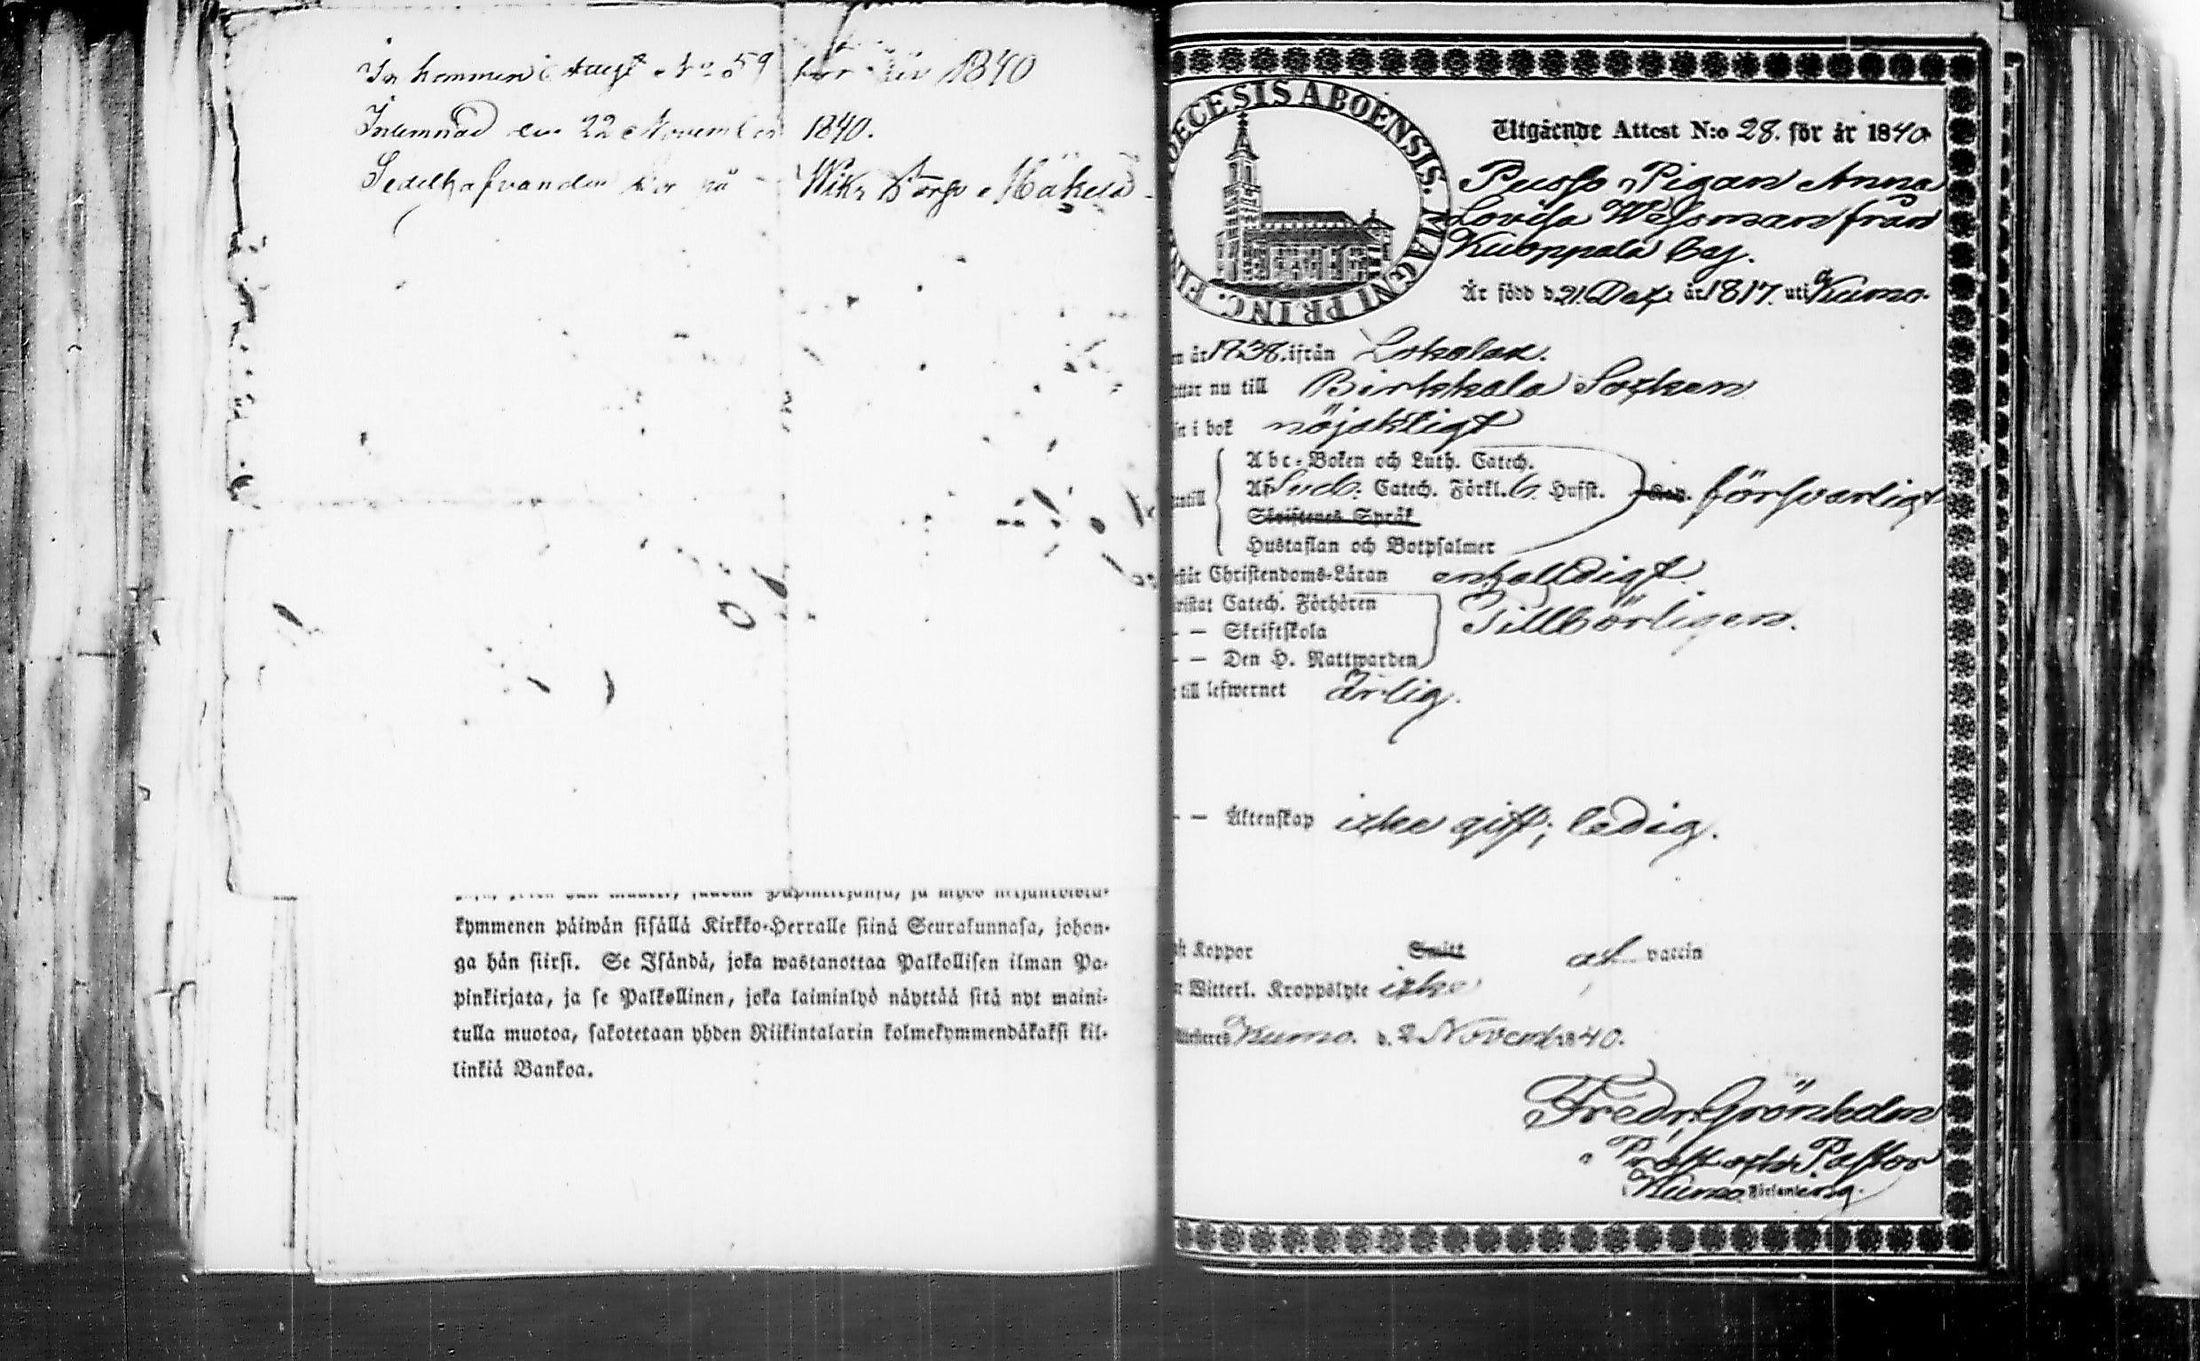 Inkommen Attest No 59 för år 1840
Inlemnad den 22 November 1840.
Sedelhafvanden bor på Wik Torp Mäkelä
kymmenen päiwän sisällä Kirkko-Herralle siinä Seurakunnasa, johon-
ga hän siirsi. Se Isändä, joka wastanottaa Palkollisen ilman Pa-
pinkirjata, ja se Palkollinen, joka laiminlyö näyttää sitä nyt maini-
tulla muotoa, sakotetaan yhden Riikintalarin kolmekymmendäkaksi kil-
linkiä Bankoa.
DIOECESIS ABOENSIS. MAGNI PRINC. FIN
Utgående Attest N:o 28. för år 1840
Pigan Anna
Lovisa Walsman från
Kuoppala by.
Är född d. 21. Dec. år 1817. uti Kumo.
år 1838. ifrån Lokalax.
nu till Birkkala Socken
i bok nöjaktigt
Abc-Boken och Luth. Catech.
Af Sveb. Catech. Förkl. 6 Hufst. försvarligt
Skriftenes Språk
Hustaflan och Botpsalmer
Christendoms-Läran enfalldigt.
Catech. Förhören
— — Skriftskola Tillbörligen.
— — Den H. Nattwarden
till lefwernet Ärlig.
— — Äktenskap icke gift; ledig.
Koppor Smitt af vaccin
Witterl. Kroppslyte icke
Kumo. d. 2 Novemb 1840.
Fredr. Grönholm
Prost och Pastor
i Kumo Församling.